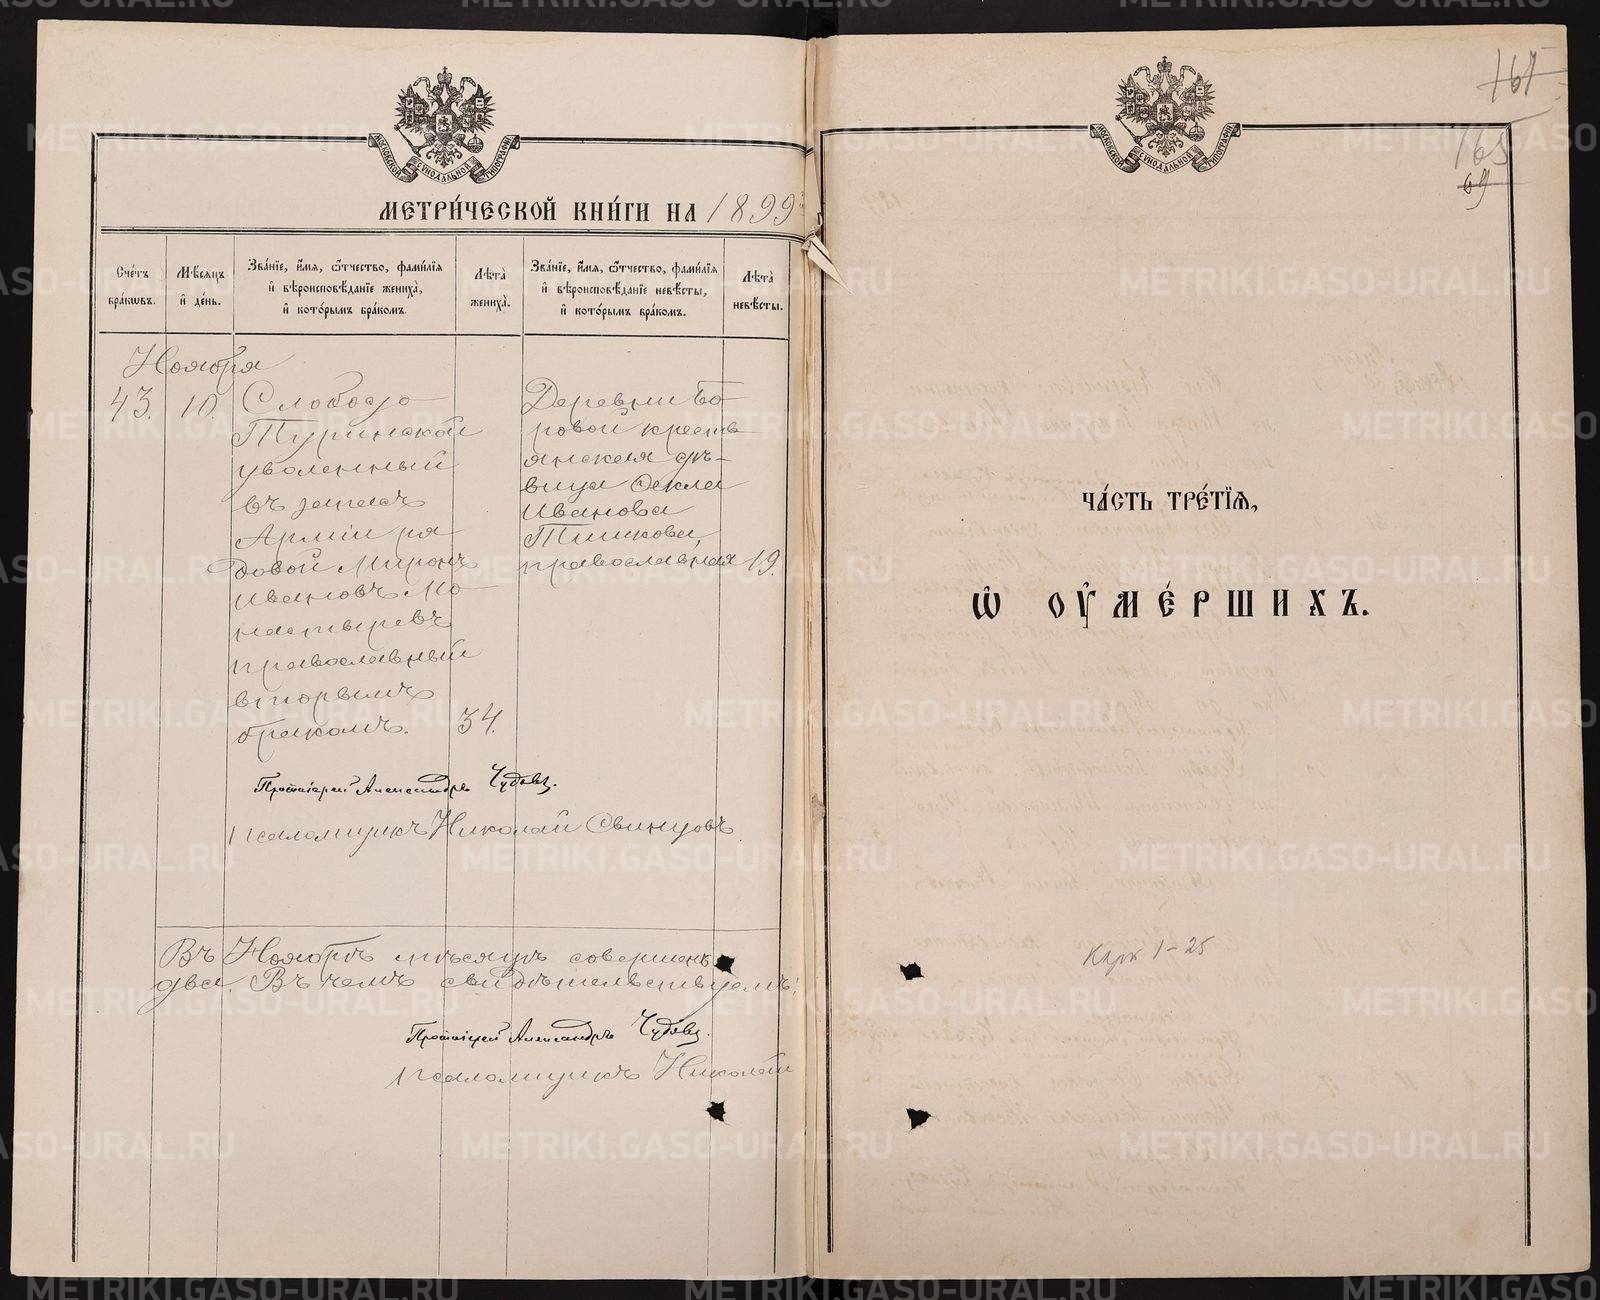 МОСКОВСКОЙ СѴНОДАЛЬНОЙ ТИПОГРАФІИ
МЕТРИ́ЧЕСКОЙ КНИ́ГИ НА 1899
Сче́тъ бра́кѡвъ.
Мѣ́сѧцъ и҆ де́нь.
Зва́нїе, и҆́мѧ, ѻ҆́тчество, фами́лїѧ и҆ вѣроисповѣ́данїе жениха̀, и҆ кото́рымъ бра́комъ.
Лѣ́та жениха̀.
Зва́нїе, и҆́мѧ, ѻ҆́тчество, фами́лїѧ и҆ вѣроисповѣ́данїе невѣ́сты, и҆ кото́рымъ бра́комъ.
Лѣ́та невѣ́сты.
Ноября
43. 10.
Слободо
Туринской
уволенный
въ запасъ
Арміи ря
довой Миронъ
Ивановъ Мо
настыревъ
православный
вторымъ
бракомъ. 34.
Деревни Бо
ровой крестъ
янская дѣ-
вица Фекла
Иванова
Тишкова,
православная 19.
Протоіерей Александръ Чудовъ.
Псаломщикъ Николай Свинцовъ
Въ Ноябрѣ мѣсяцѣ совершенъ
два. Въ чемъ свидѣтельствуемъ:
Протоіерей Александръ Чудовъ.
Псаломщикъ Николай
167
165
69
МОСКОВСКОЙ СѴНОДАЛЬНОЙ ТИПОГРАФІИ
ЧА́СТЬ ТРЕ́ТЇѦ,
Ѡ҆ ОУ҆МЕ́РШИХЪ.
1-25
METRIKI.GASO-URAL.RU